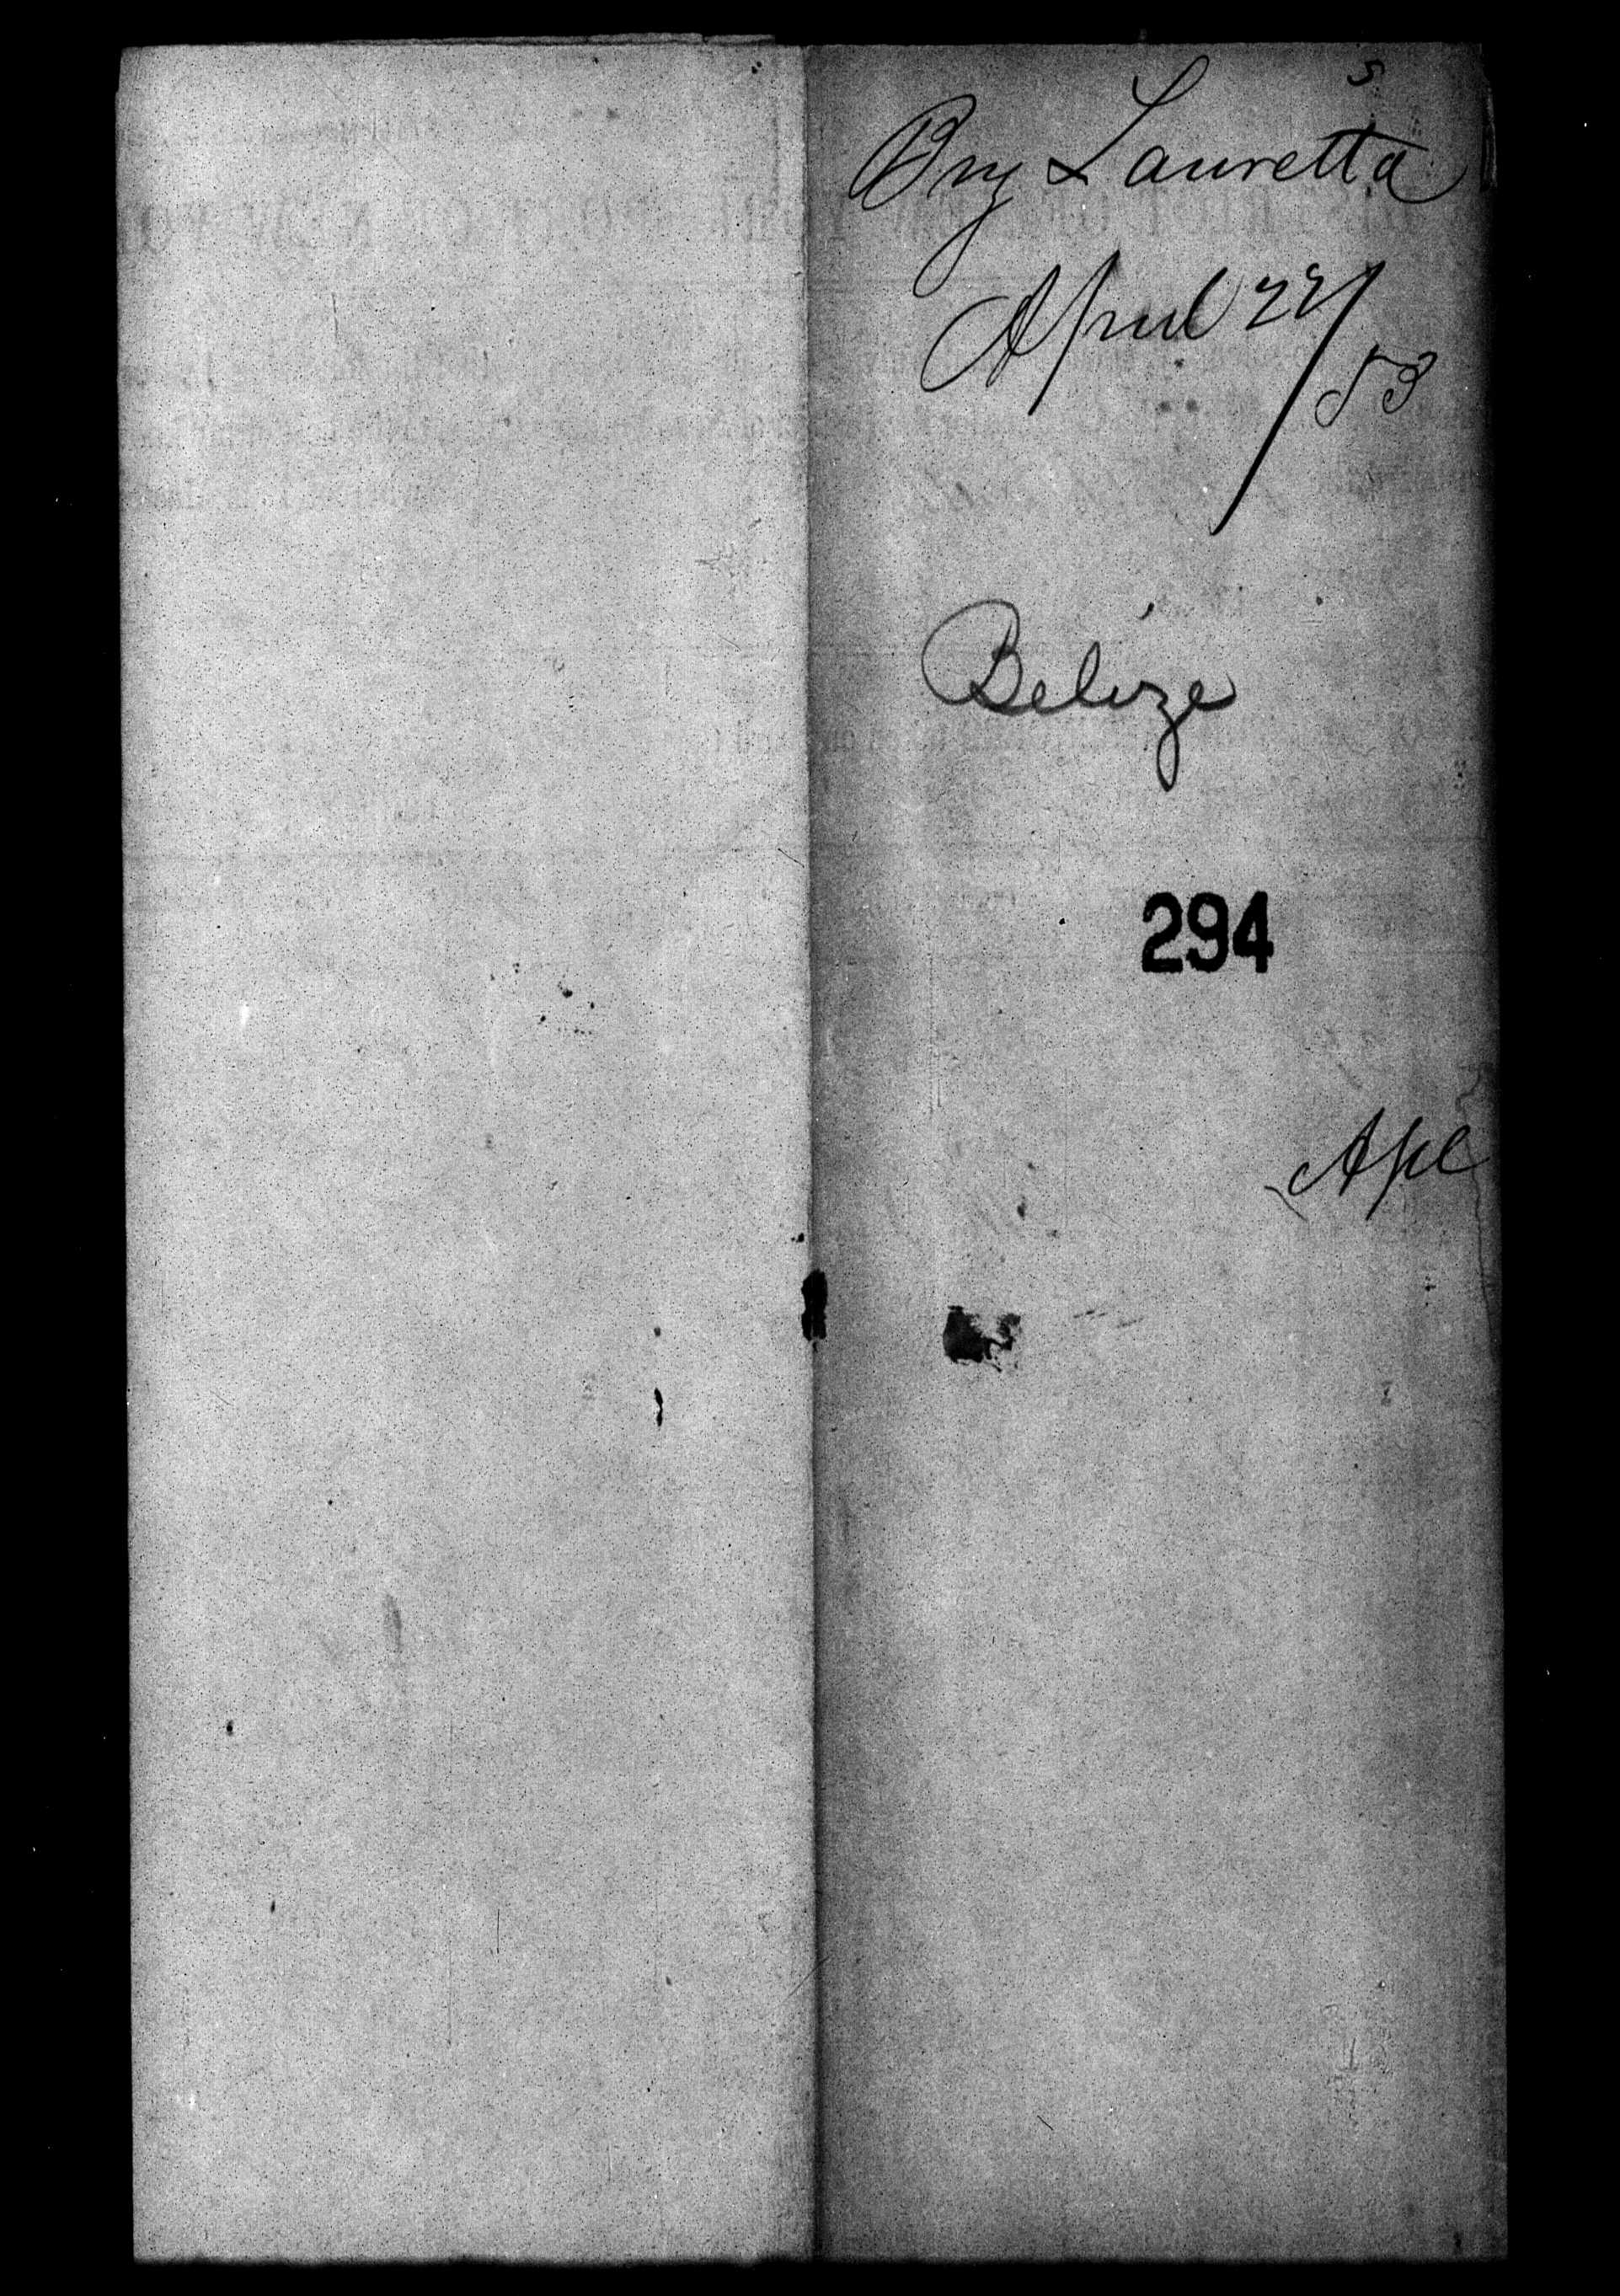 s
Brg Lauretta
April 22/53
Belize
294
Apl